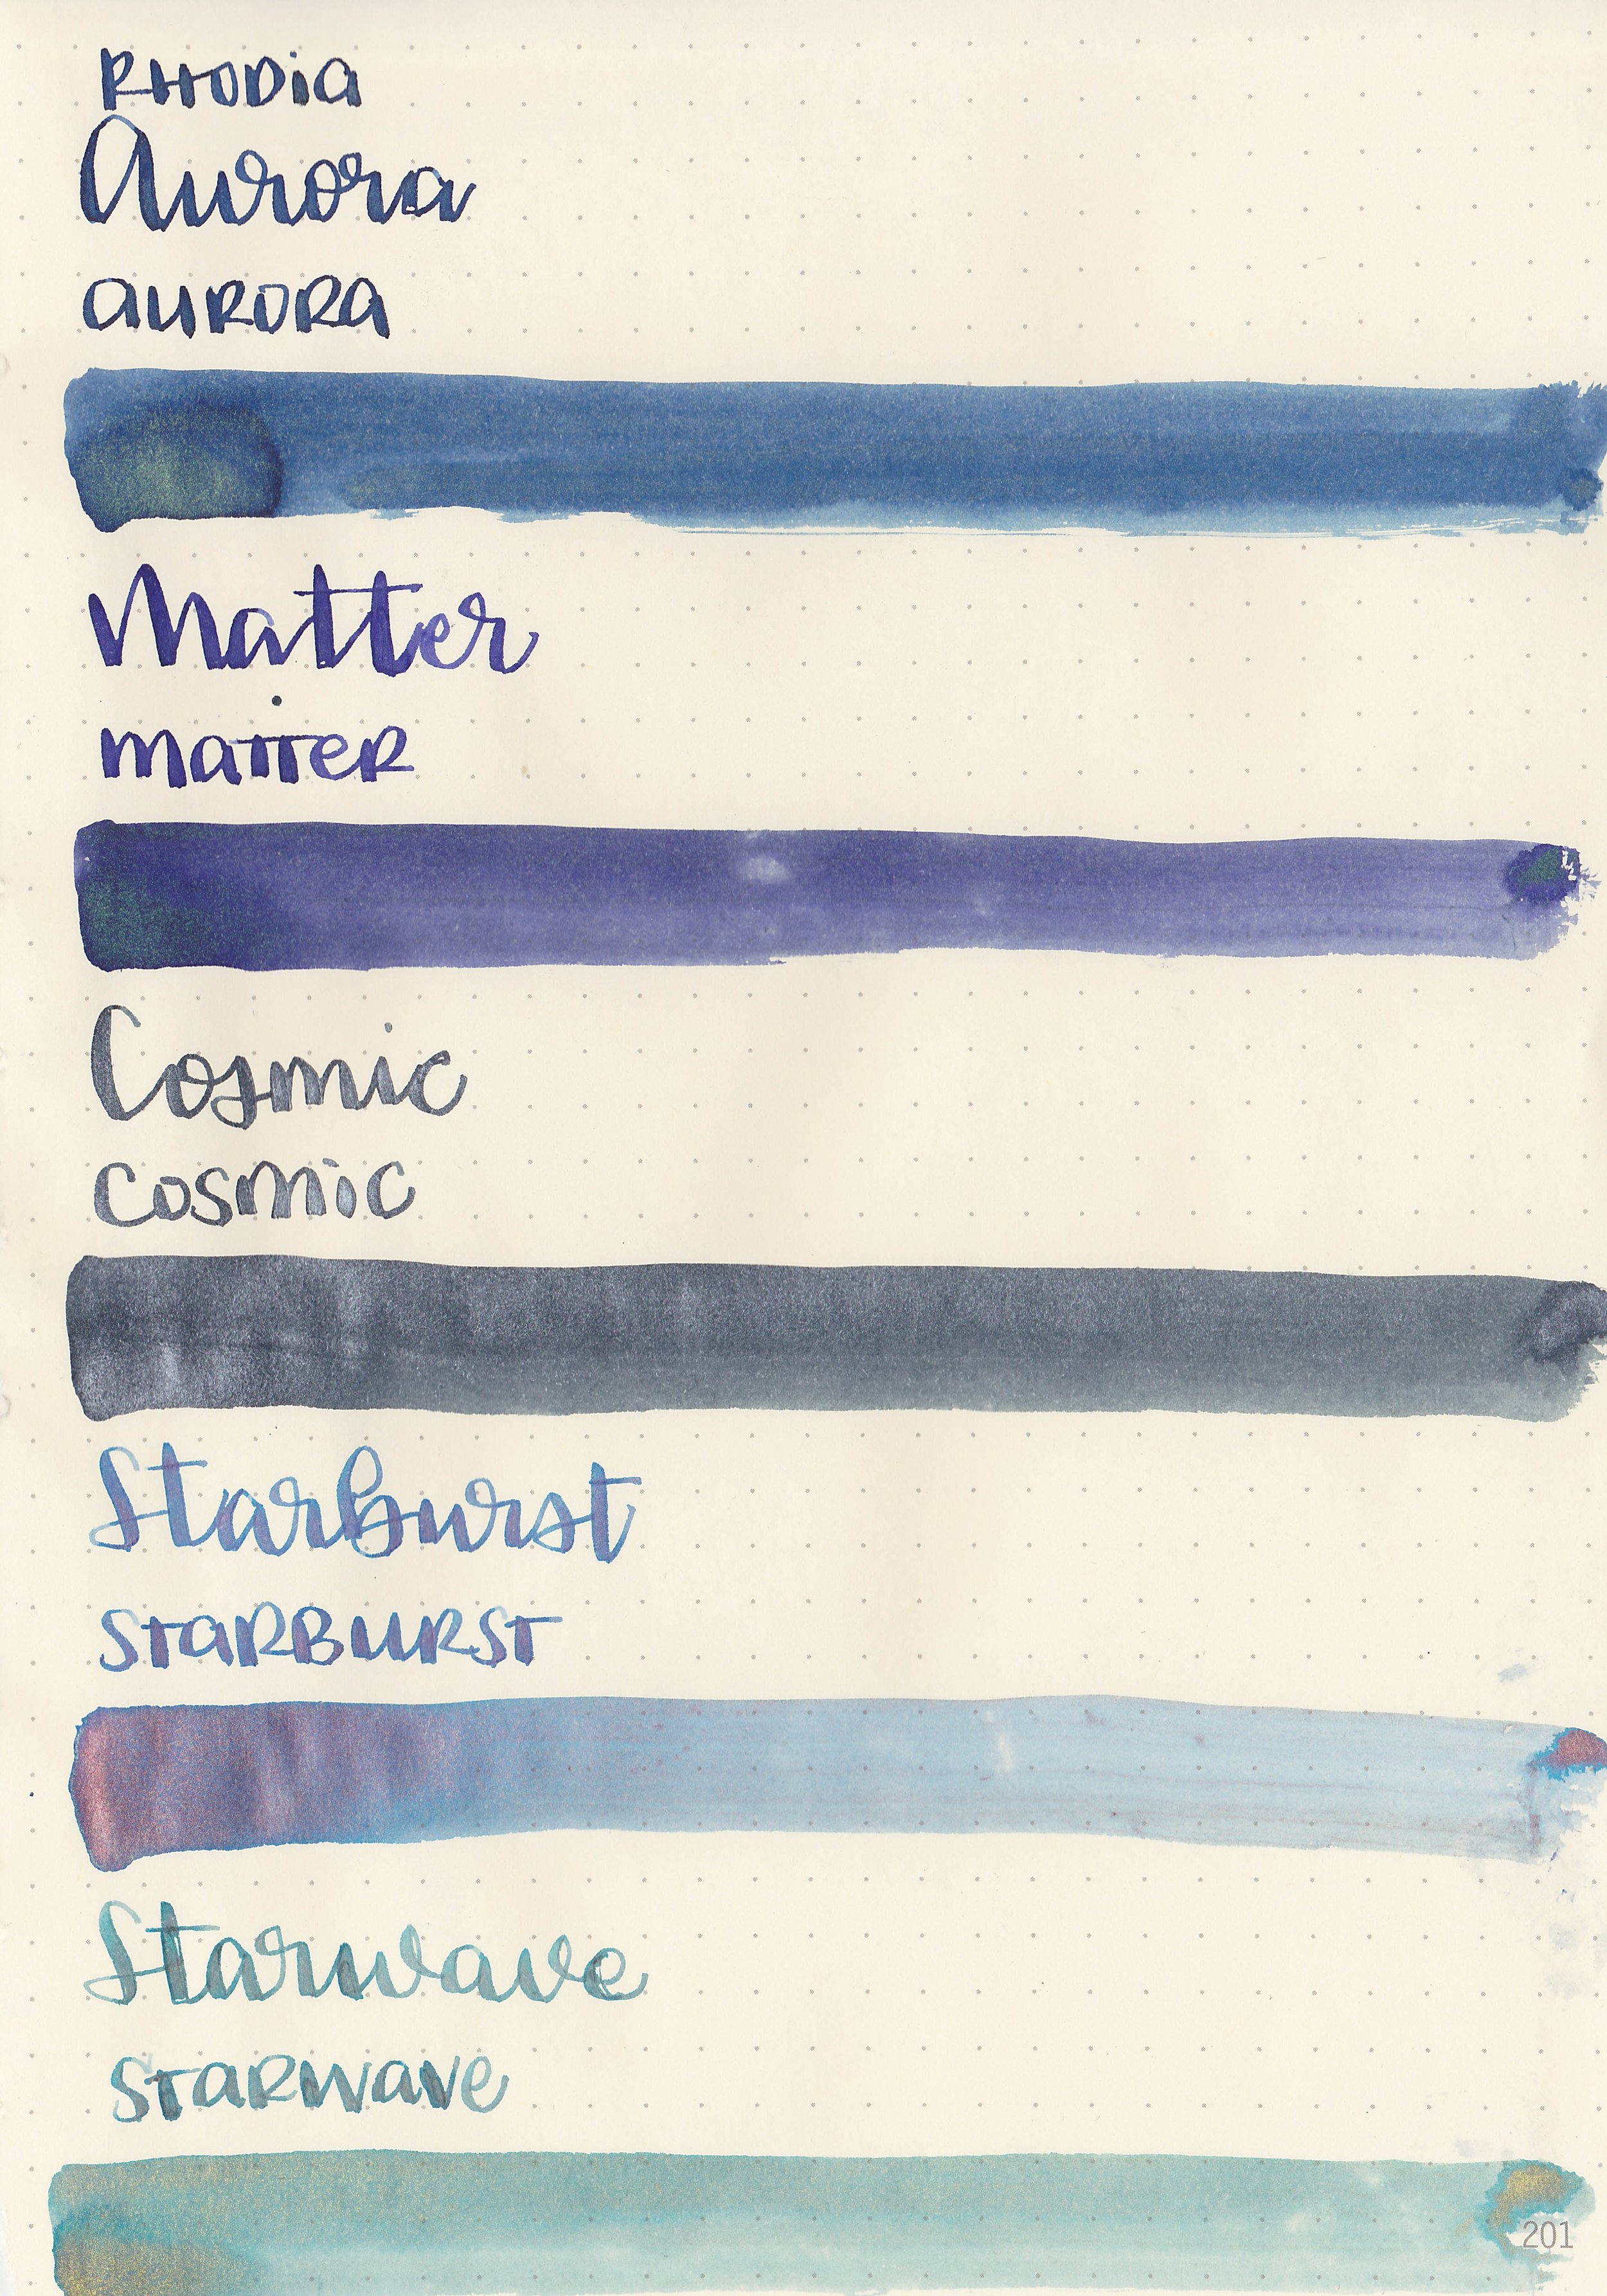 RHODIA
Aurora
AURORA
Matter
MATTER
Cosmic
COSMIC
Starburst
STARBURST
Starwave
STARWAVE
201